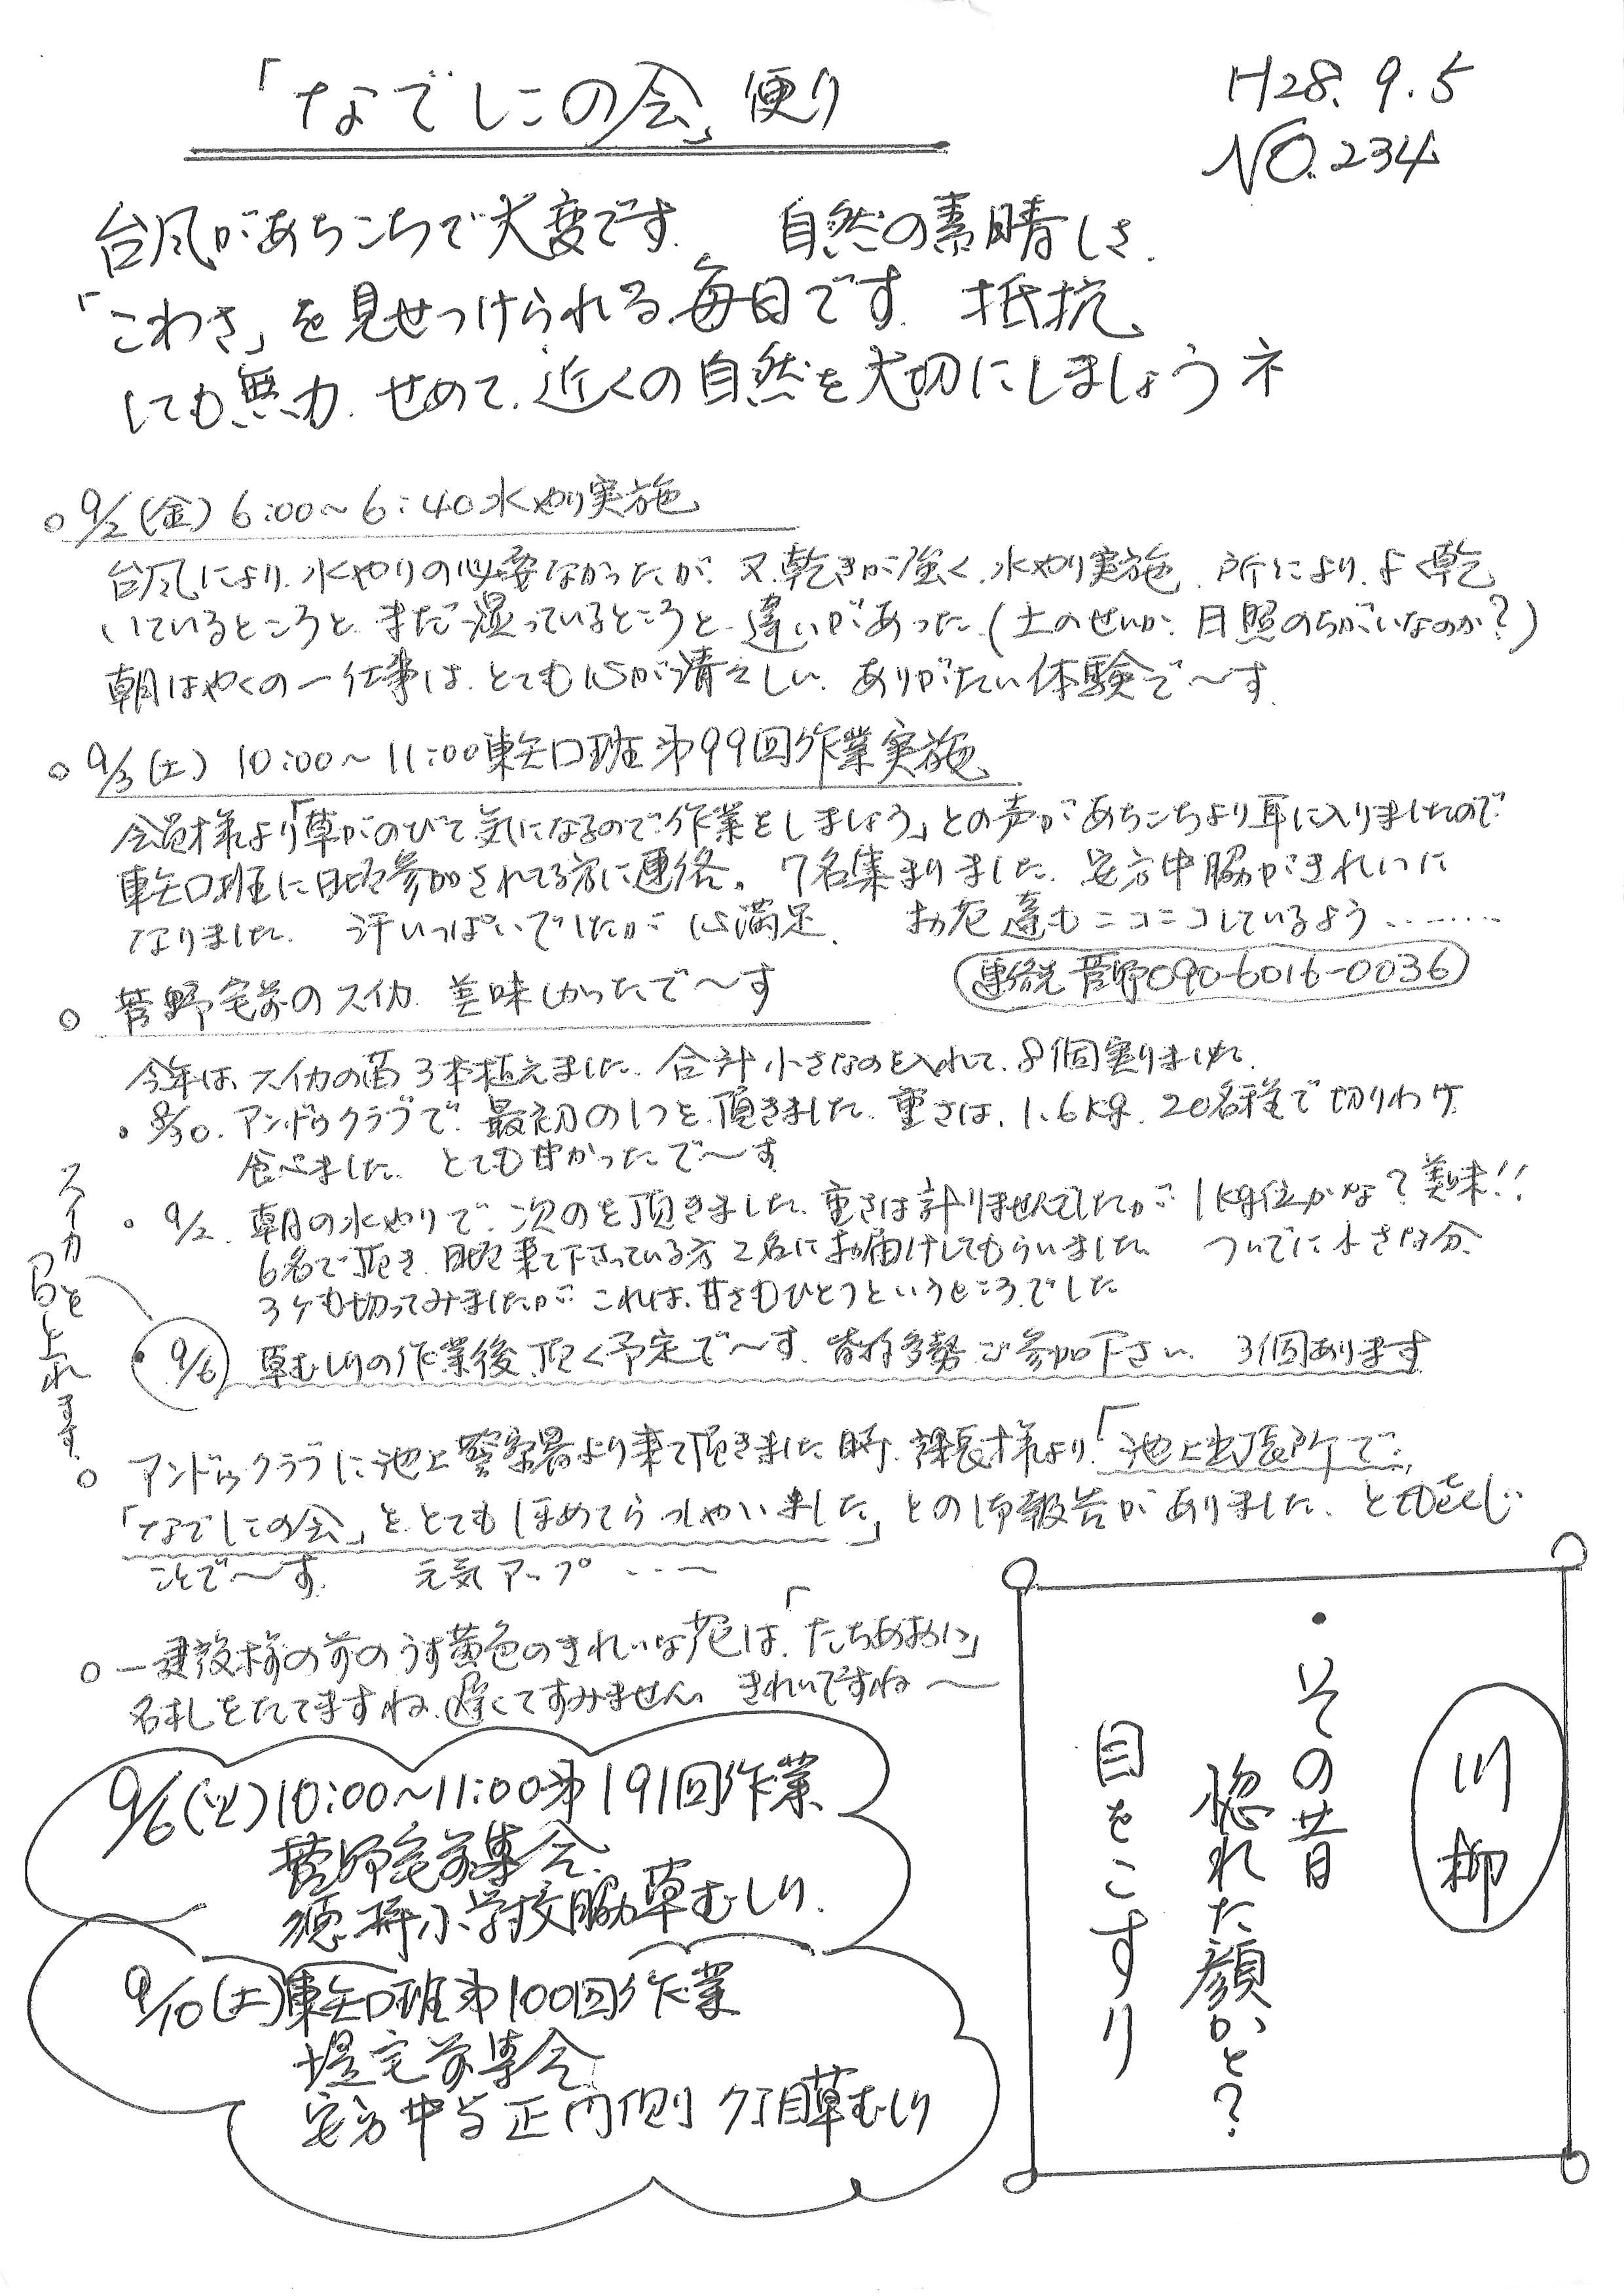 「なでしこの会」便り
H28.9.5
NO.234
台風があちこちで大変です. 自然の素晴しさ.
「こわさ」を見せつけられる毎日です. 抵抗
しても無力. せめて. 近くの自然を大切にしましょうネ
○ 9/2(金) 6:00～6:40 水やり実施
台風により. 水やりの必要なかったが. 又乾きが強く. 水やり実施. 所により. よく乾
いているところと. まだ湿っているところと. 違いがあった. (土のせいか. 日照のちがいなのか?)
朝はやくの一仕事は. とても心が清々しい. ありがたい体験で～す.
○ 9/3(土) 10:00～11:00 東矢口班 第99回作業実施
会員様より「草がのびて気になるので作業をしましょう」との声があちこちより耳に入りましたので
東矢口班に日頃参加されてる方に連絡。7名集まりました. 安方中脇がきれいに
なりました. 汗いっぱいでしたが 心満足. お花達もニコニコしているよう........
連絡先 菅野090-6016-0036
○ 菅野宅前のスイカ. 美味しかったで～す
今年は. スイカの苗3本植えました. 合計小さなのを入れて. 8個実りました.
・8/30. アンドゥクラブで. 最初の1つを頂きました. 重さは. 1.6kg. 20名程で切りわけ
食べました. とても甘かったで～す
・9/2. 朝の水やりで. 次のを頂きました. 重さは計りませんでしたが 1kg位かな? 美味!!
6名で頂き. 日頃来て下さっている方2名にお届けしてもらいました. ついでに小さな分.
3ケも切ってみましたが. これは. 甘さもひとつというところでした
・9/6 草むしりの作業後. 頂く予定で～す. 皆様多勢ご参加下さい. 3個あります
スイカ
日と上れます.
○ アンドゥクラブに池上警察署より来て頂きました時. 課長様より「池上出張所で.
「なでしこの会」を. とてもほめてらっしゃいました」との御報告がありました. とても嬉しい
ことで～す. 元気アップ...～
○ 一建設様の前のうす黄色のきれいな花は.「たちあおい」
名札をたてますね. 遅くてすみません. きれいですね～
9/6(火) 10:00～11:00 第191回作業
菅野宅前集合.
徳持小学校脇草むしり.
9/10(土) 東矢口班 第100回作業
堤宅前集合
安方中学正門側 7丁目草むしり
川柳
・その昔
惚れた顔かと?
目をこすり